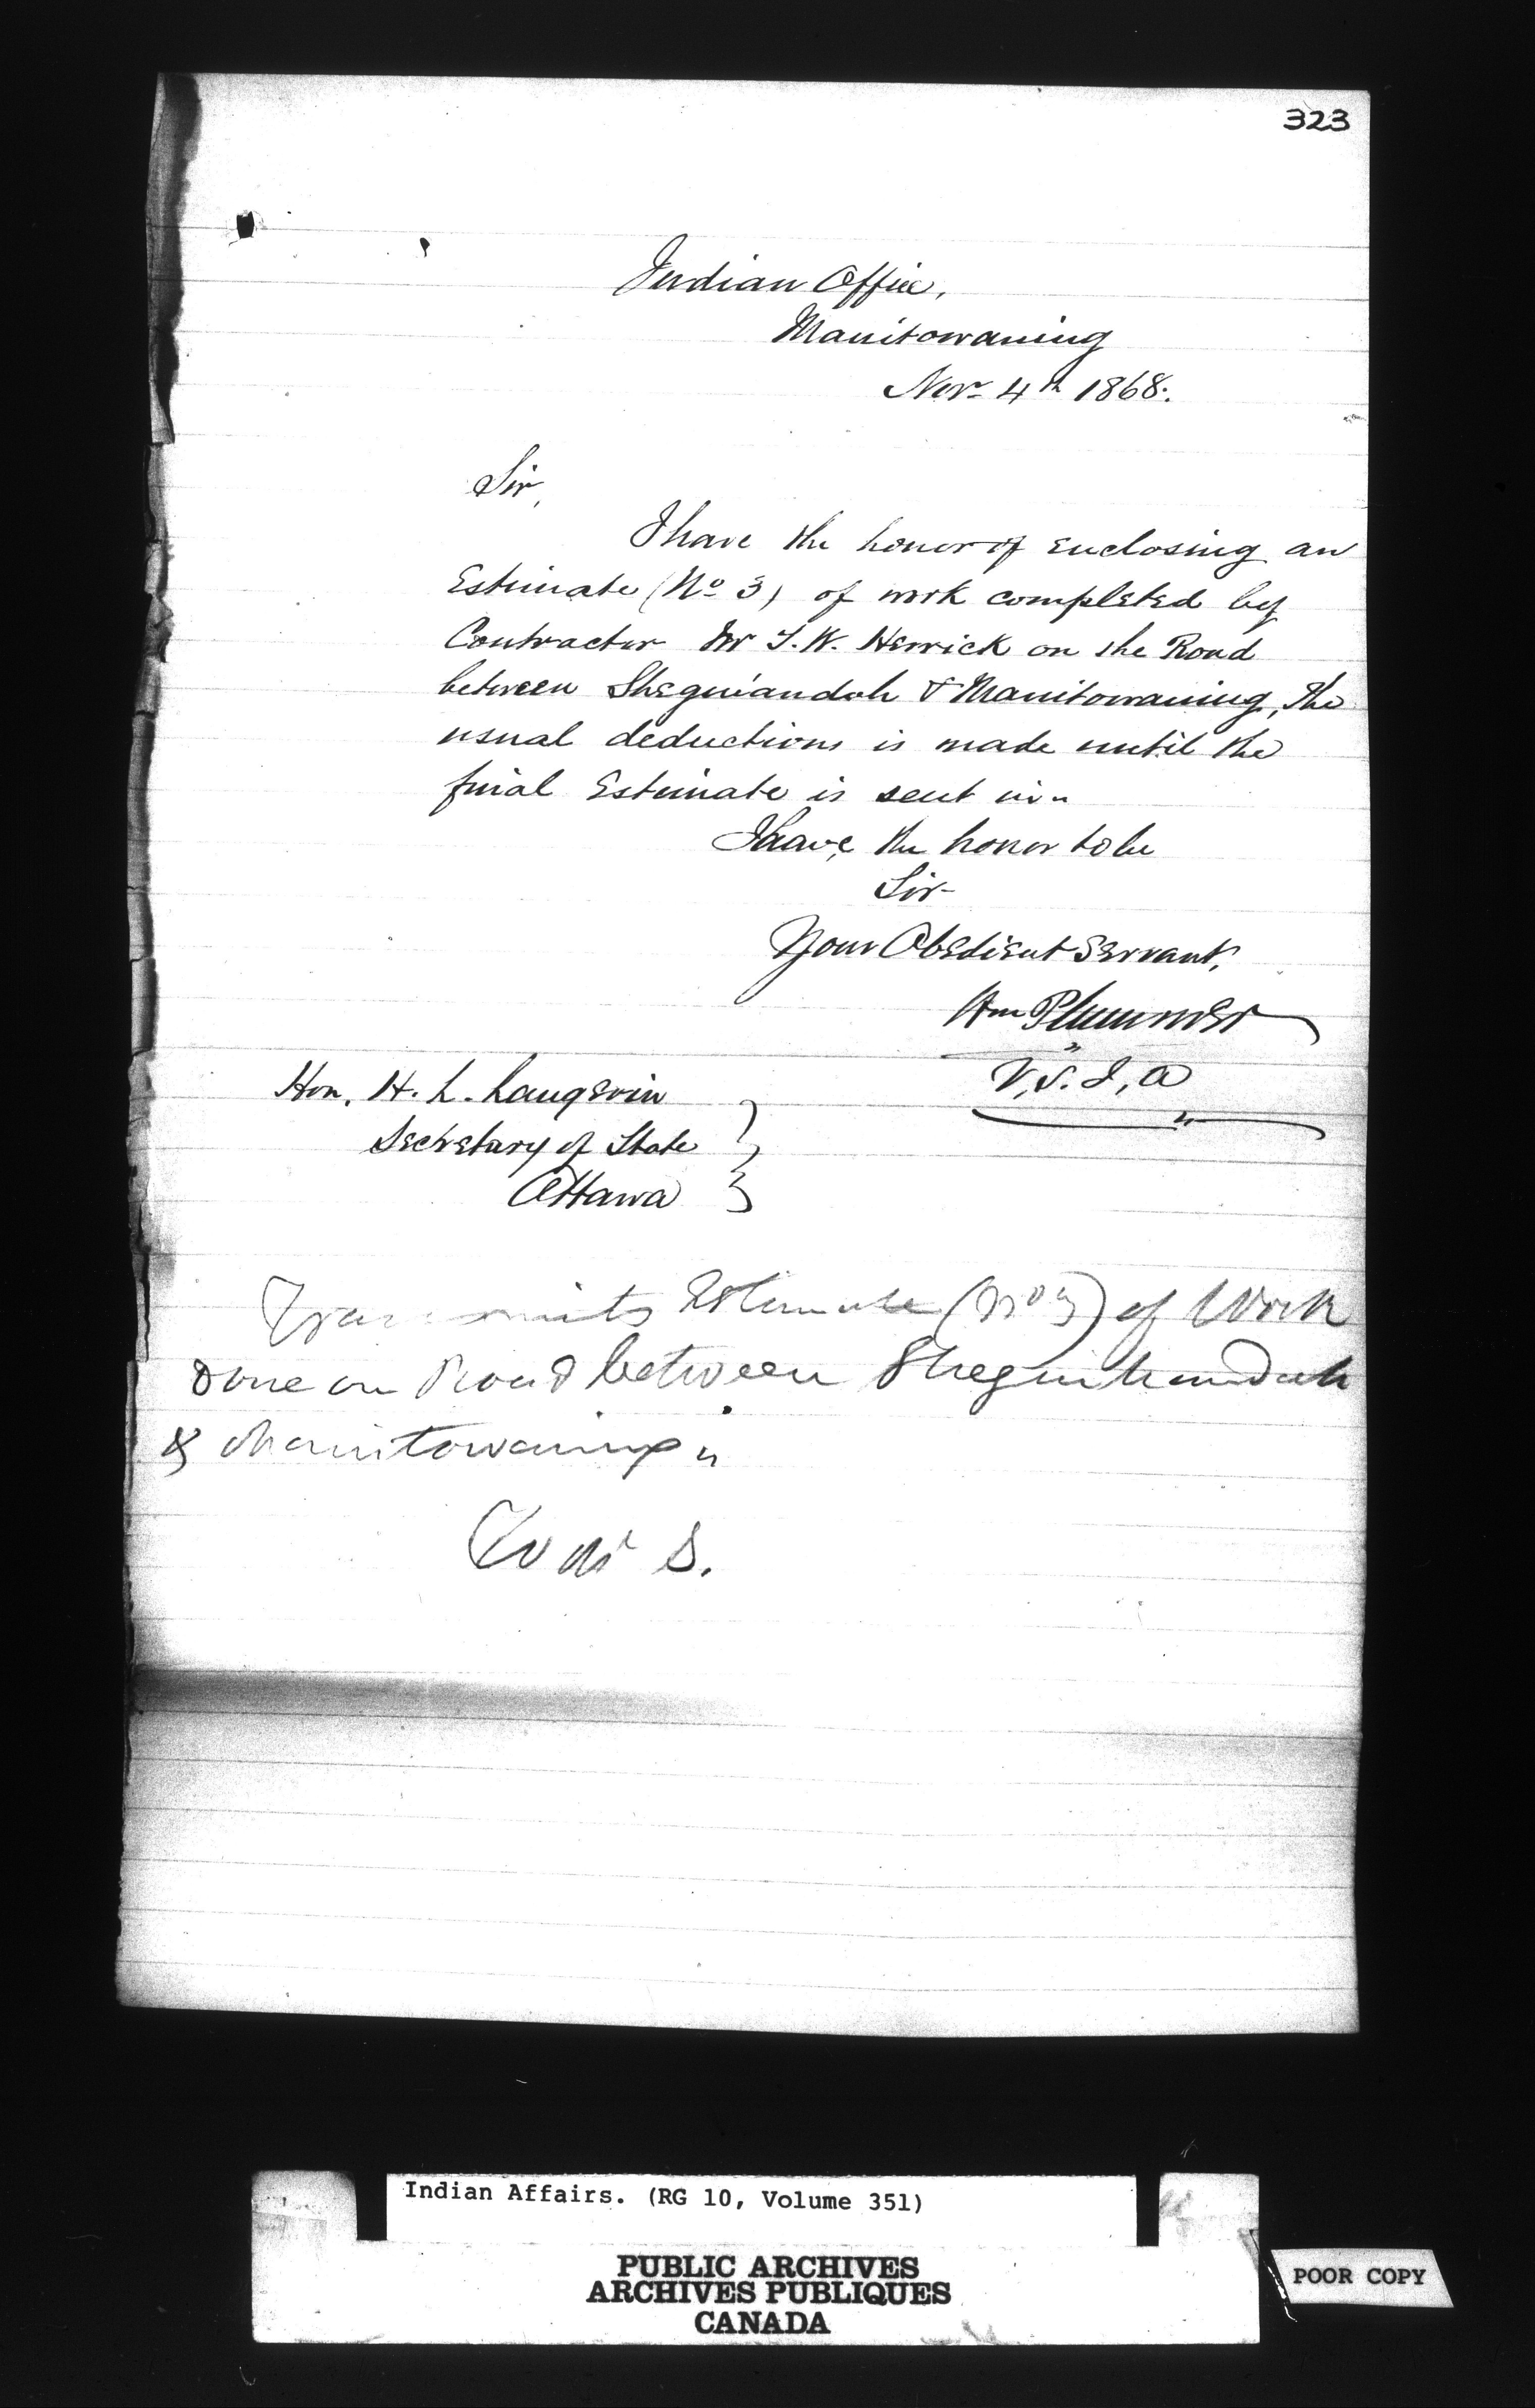 323
Indian Office,
Manitowaning
Novr 4th 1868.
Sir,
I have the honor of enclosing an
Estimate (No 3) of work completed by
Contractor Mr T. W. Herrick on the Road
between Sheguiandah & Manitowaning, the
usual deductions is made until the
final Estimate is sent in "
I have the honor to be
Sir
Your Obedient Servant,
Wm Plummer
V, S. I, A
Hon. H. L. Langevin
Secretary of State
Ottawa
Transmits Estimate (No 3) of Work
done on Road between Sheguihandah
& Manitowaning "
S.
Indian Affairs. (RG 10, Volume 351)
PUBLIC ARCHIVES
ARCHIVES PUBLIQUES
CANADA
POOR COPY